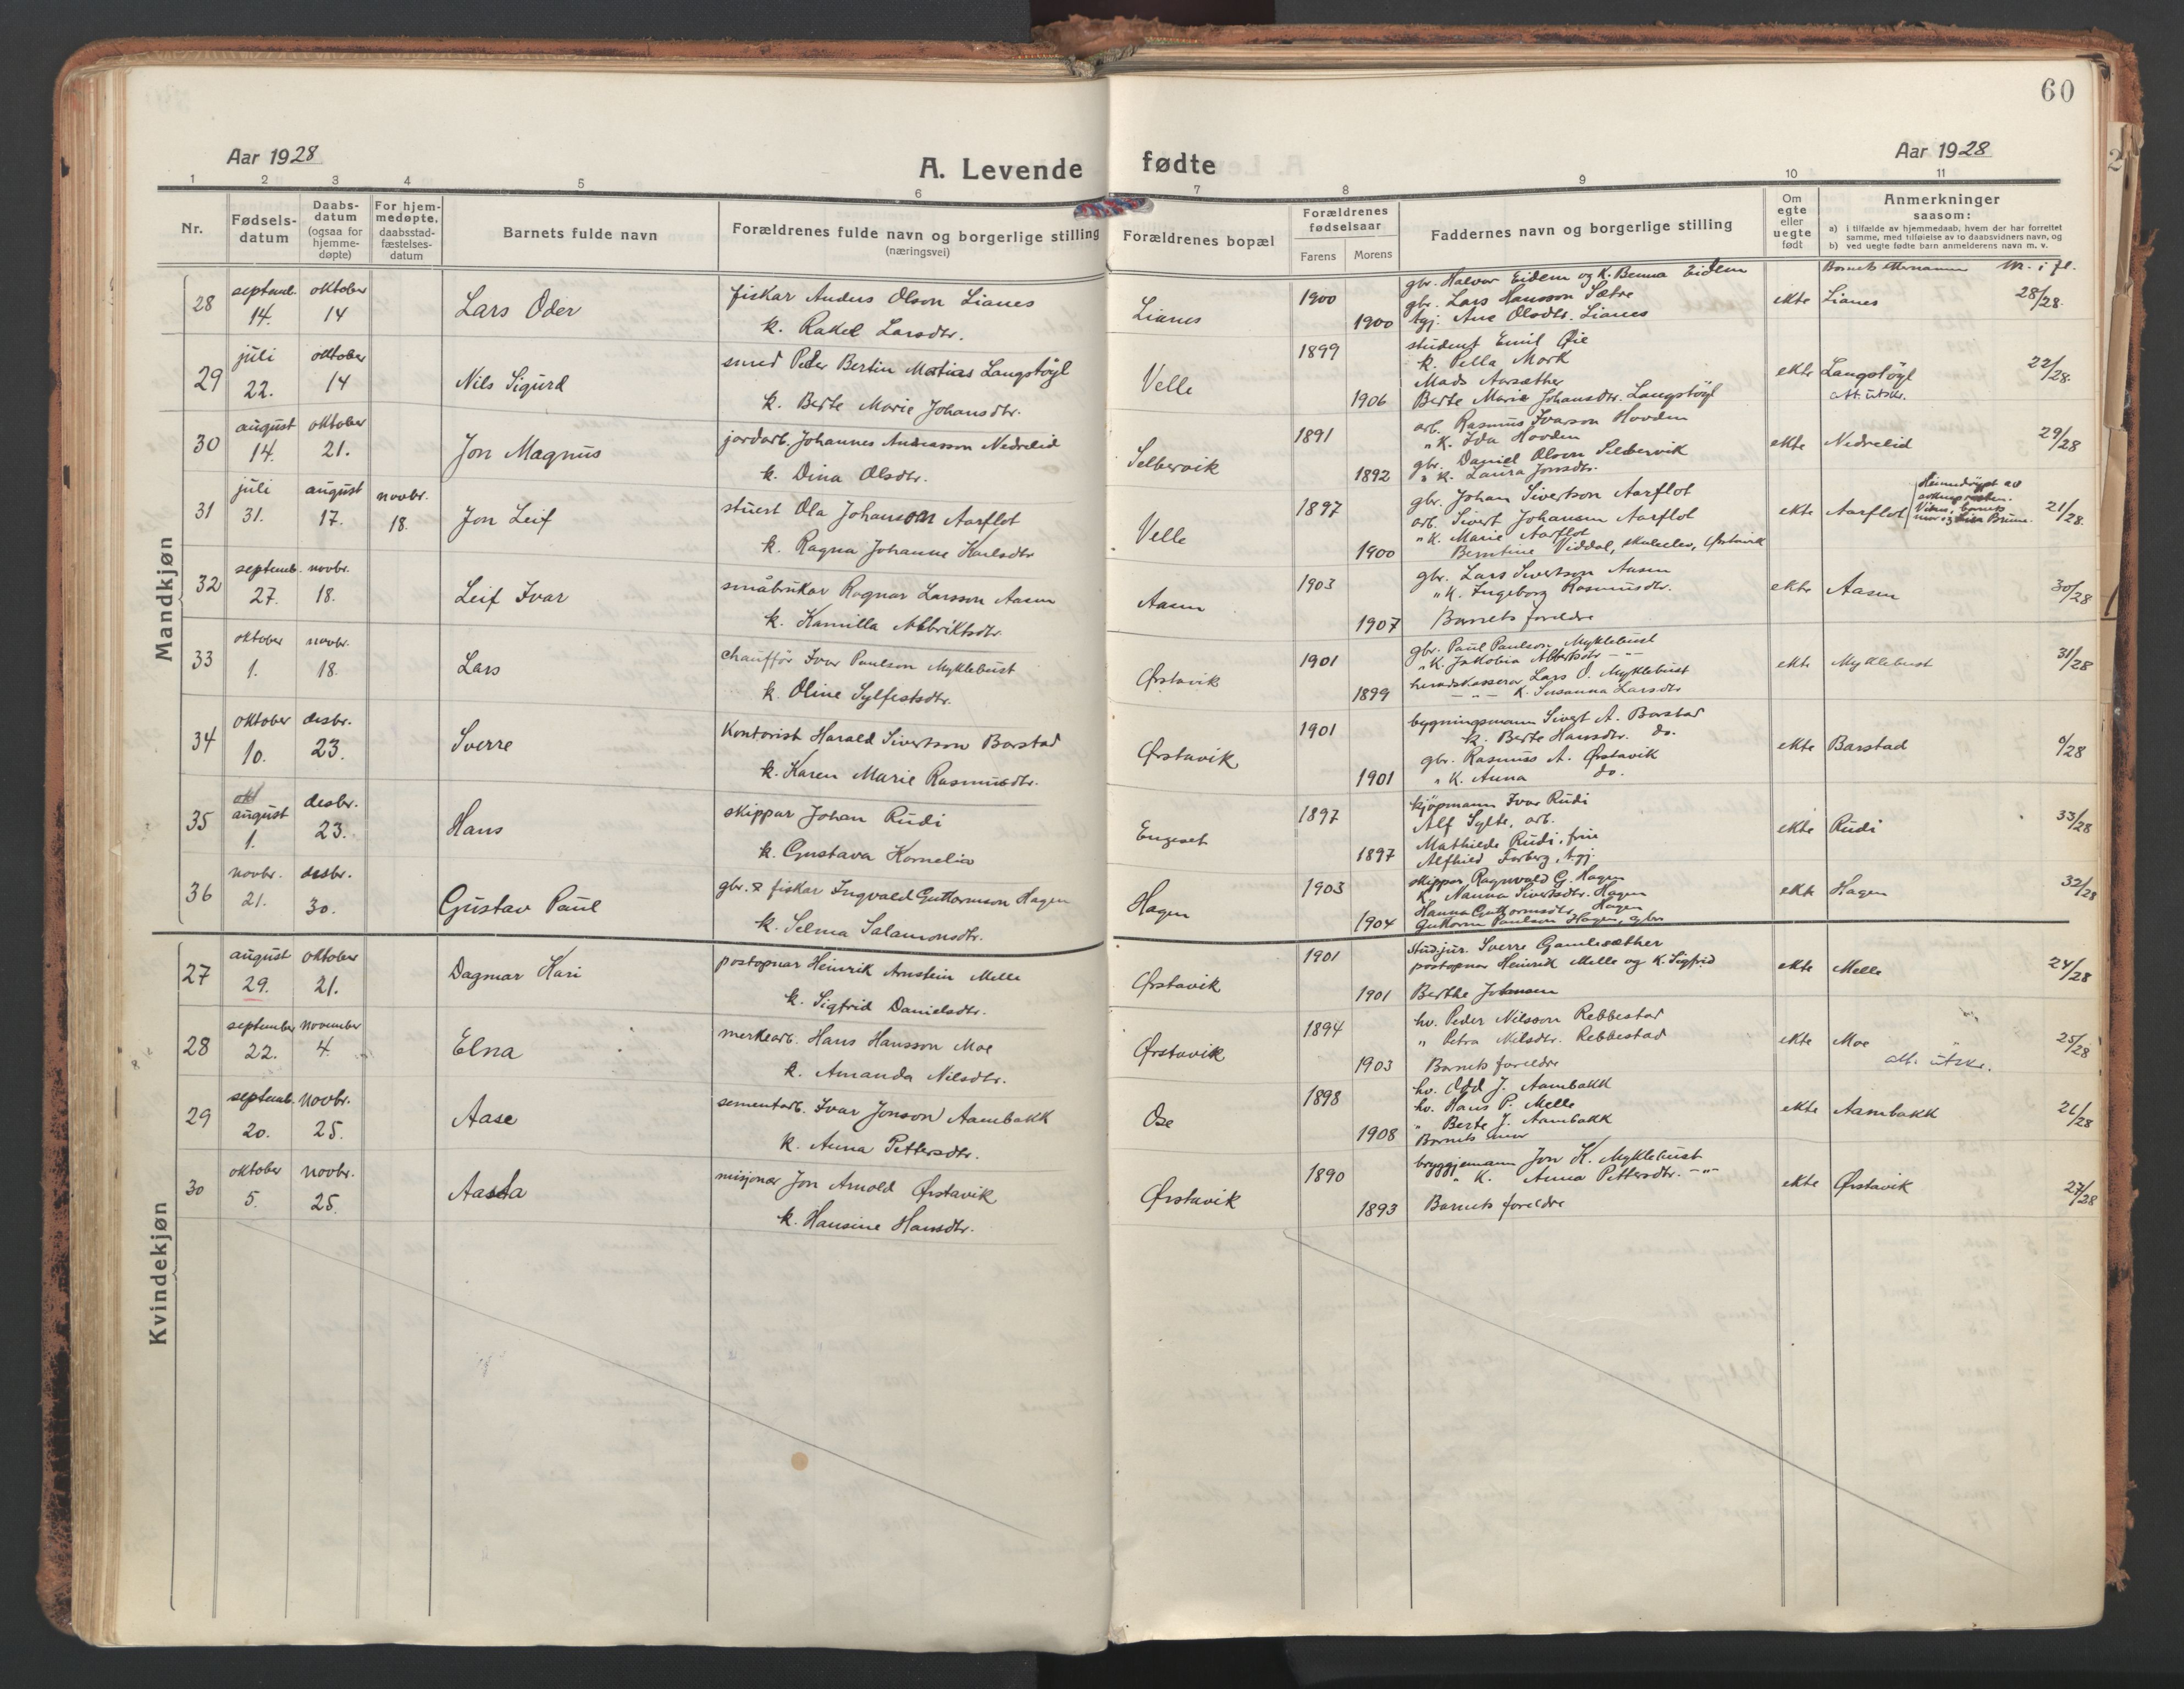 60
Aar 1928
A. Levende fødte
Aar 1928
1 2 3 4 5 6 7 8 9 10 11
Nr.
Fødselsdatum
Daabsdatum (ogsaa for hjemmedøpte)
For hjemmedøpte. daabsstadfæstelsesdatum
Barnets fulde navn
Forældrenes fulde navn og borgerlige stilling (næringsvei)
Forældrenes bopæl
Forældrenes fødselsaar
Farens Morens
Faddernes navn og borgerlige stilling
Om egte eller uegte født
Anmerkninger saasom:
a) i tilfælde av hjemmedaab, hvem der har forrettet samme, med tilføielse av to daabsvidners navn, og
b) ved uegte fødte barn anmelderens navn m. v.
Mandkjøn
Barnets etternamn M. i fl.
28 septemb. 14. oktober 14 Lars Oder
fiskar Anders Olson Lianes
k. Rakel Larsdtr.
Lianes 1900 1900
gbr. Halvar Eidem og K. Benna Eidem
gbr. Lars Hansson Sætre
tgj. Ane Olsdtr. Lianes
ekte Lianes 28/28.
29 juli 22. oktober 14 Nils Sigurd
smed Peder Bertin Matias Langstöyl
k. Berte Marie Johansdtr.
Velle 1899 1906
student Emil Øie
k. Pella Mork
Mads Aarsæther
Berte Marie Johansdtr. Langstöyl
ekte Langstöyl 22/28.
att. utskr.
30 august 14. oktober 21. Jon Magnus
jordarb. Johannes Andreasson Nedrelid
k. Dina Olsdtr.
Selbervik 1891 1892
arb. Rasmus Ivarson Hovden
" K. Ida Hovden
gbr. Daniel Olson Selbervik
" K. Laura Jonsdtr.
ekte Nedrelid 29/28
31 juli 31. august 17. novbr. 18. Jon Leif
stuert Ola Johanson Aarflot
k. Ragna Johanne Karlsdtr
Velle 1897 1900
gbr. Johan Sivertson Aarflot
arb. Sivert Johansen Aarflot
" K. Marie Aarflot
Berntine Viddal, skuleelev, Ørstavik
ekte Aarflot 21/28.
Heimedöypt av
barnets
32 septemb. 27. novbr. 18. Leif Ivar
småbrukar Ragnar Larsson Aasen
k. Kamilla
Aasen 1903 1907
gbr. Lars Sivertson Aasen
" K. Ingeborg Rasmusdtr.
Barnets foreldre
ekte Aasen 30/28
33 oktober 1. novbr. 18. Lars
chaufför Ivar Paulson Myklebust
k. Oline Sylfestsdtr.
Ørstavik 1901 1899
gbr. Paul Paulson Myklebust
" K. Jakobia Albertsdtr – " –
heradskasserar Lars O. Myklebust
– " – K. Susanna Larsdtr
ekte Myklebust 31/28
34 oktober 10. desbr. 23. Sverre
Kontorist Harald Sivertson Barstad
k. Karen Marie Rasmusdtr.
Ørstavik 1901 1901
bygningsmann Sivert A. Barstad
k. Berte Hansdtr. do.
gbr. Rasmus A. Ørstavik
" K. Anna do.
ekte Barstad
35 okt august 1. desbr. 23. Hans
skippar Johan Rudi
k. Gustava Kornelia
Engeset 1897 1897
kjöpmann Ivar Rudi
Alf Sylte, arb.
Mathilde Rudi, frue
Alfhild Farberg, tgj.
ekte Rudi 33/28
36 novbr. 21. desbr. 30. Gustav Paul
gbr. & fiskar Ingvald Guttormson Hagen
k. Selma Salamonsdtr.
Hagen 1903 1904
skippar Ragnvald G. Hagen
K. Nanna Sivertsdtr. Hagen
Hanna Guttormsdtr. Hagen
Guttorm Paulson Hagen, gbr.
ekte Hagen 32/28
Kvindekjøn
27 august 29. oktober 21. Dagmar Kari
postopnar Heinrik Arnstein Melle
k. Sigfrid Danielsdtr.
Ørstavik 1901 1901
Studjur. Sverre Gamlesæther
postopnar Heinrik Melle og K. Sigfrid
Berthe Johansen
ekte Melle 24/28
28 september 22. november 4. Elna
merkearb. Hans Hansson Moe
k. Amanda Nilsdtr.
Ørstavik 1894 1903
hv. Peder Nilsson Rebbestad
" Petra Nilsdtr. Rebbestad
Barnets foreldre
ekte Moe 25/28
att. utskr.
29 septemb. 20. novbr. 25. Aase
sementarb. Ivar Jonson Aambakk
k. Anna Pettersdtr.
Ose 1898 1908
hv. Odd J. Aambakk
hv. Hans P. Melle
" Berte J. Aambakk
Barnets mor
ekte Aambakk 26/28
30 oktober 5. novbr. 25. Aasta
misjonær Jon Arnold Ørstavik
k. Hansine Hansdtr.
Ørstavik 1890 1893
bryggjemann Jon K. Myklebust
" K. Anna Pettersdtr. – " –
Barnets foreldre
ekte Ørstavik 27/28